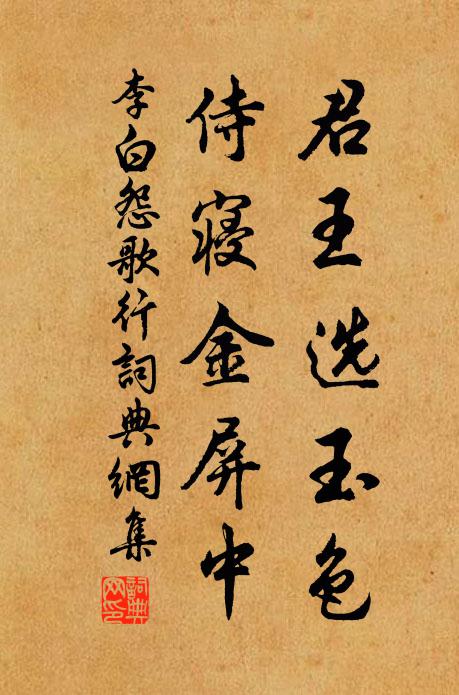 君王选玉色
侍寝金屏中
李白怨歌行詞典網集
詞典
网印